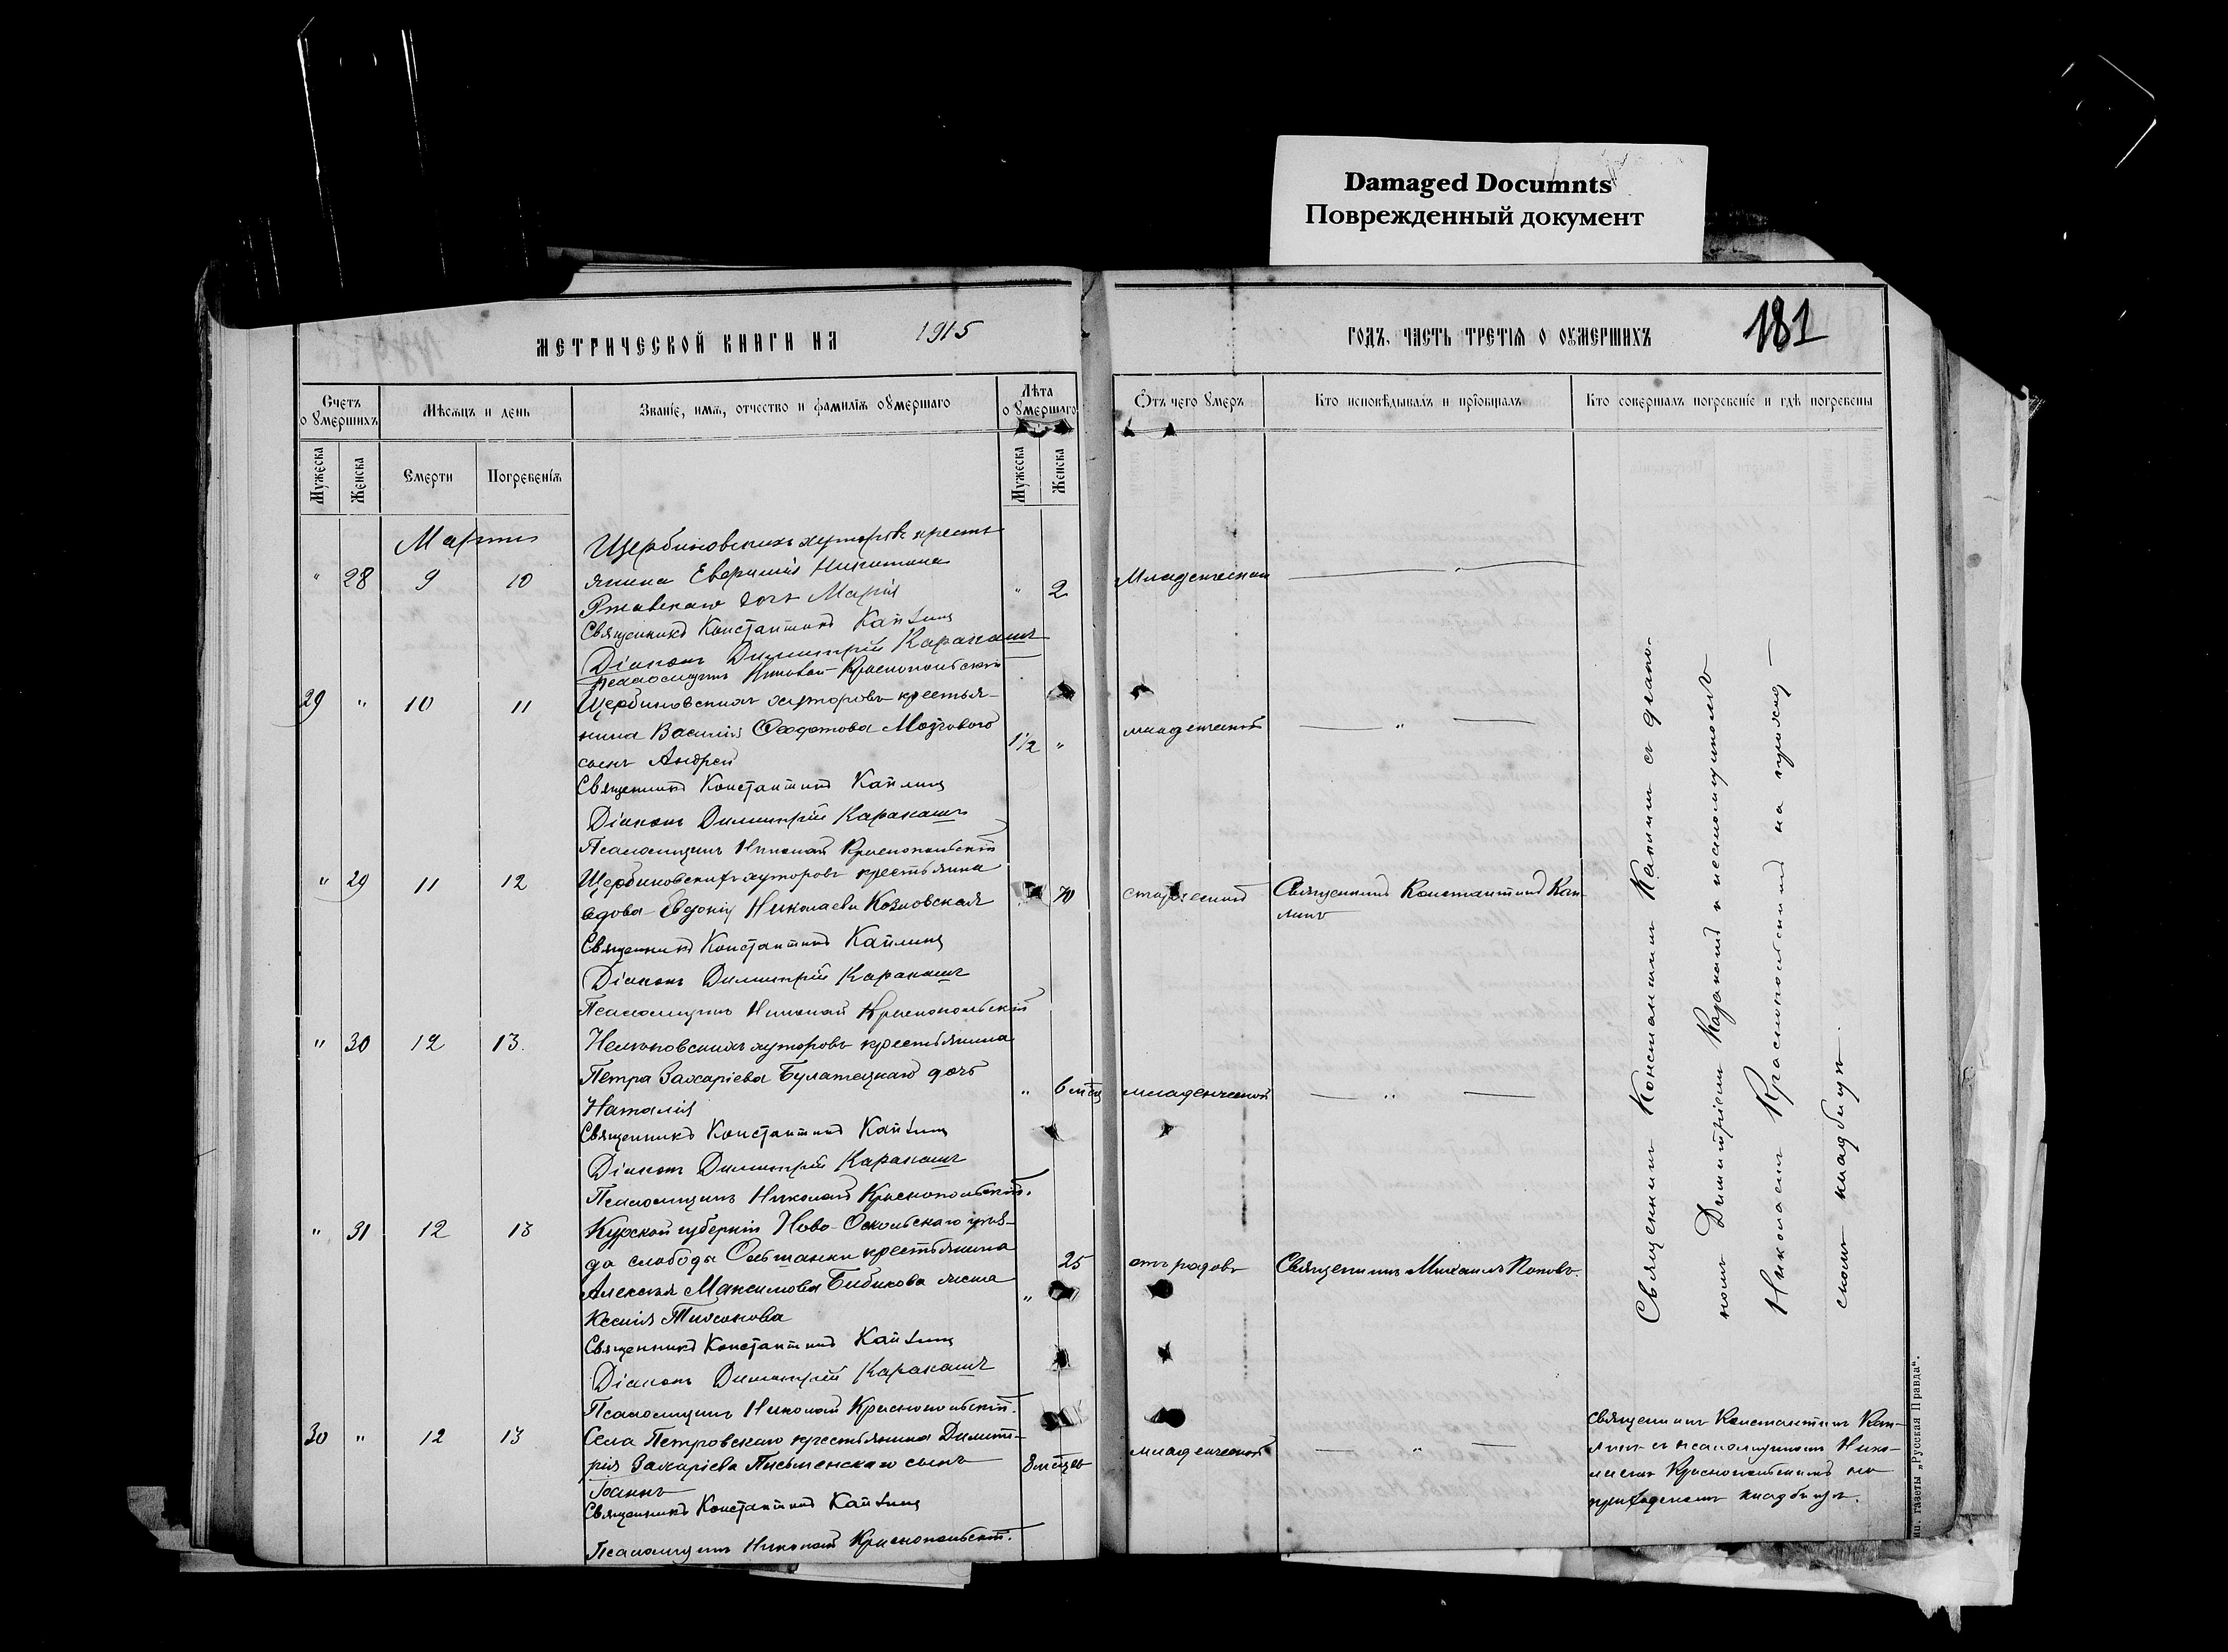 Damaged Documnts
Поврежденный документ
МЕТРИЧЕСКОЙ КНИГИ НА 1915
ГОДЪ, ЧАСТЬ ТРЕТІЯ О ОУМЕРШИХЪ
181
Счетъ
о Умершихъ
Мѣсяцъ и день
Званіе, имя, отчество и фамилія оумершаго
Лѣта
о Умершаго
Мужеска
Женска
Смерти
Погребенія
Мужеска
Женска
Отъ чего Умеръ
Кто исповѣдывалъ и пріобщалъ
Кто совершалъ погребеніе и гдѣ погребены
Марта
Щербиновскихъ хуторовъ кресть
" 28 9 10 янина Евфимія Никитина " 2 Младенческой — " —
Ржавскаго дочь Марія
Священникъ Константинъ Каплинъ
Діаконъ Димитрій Каракашъ
Псаломщикъ Николай Краснопольскій
29 " 10 11 Щербиновскихъ хуторовъ крестья-
нина Василія Феодотова Мозгового 1½ " младенческой — " —
сынъ Андрей
Священникъ Константинъ Каплинъ
Діаконъ Димитрій Каракашъ
Псаломщикъ Николай Краснопольскій
" 29 11 12 Щербиновскихъ хуторовъ крестьянина
вдова Евдокія Николаева Козловская 70 старческой Священникъ Константинъ Кап-
линъ
Священникъ Константинъ Каплинъ
Діаконъ Димитрій Каракашъ
Псаломщикъ Николай Краснопольскій
" 30 12 13 хуторовъ крестьянина
Петра Захаріева Булатецкаго дочь " 6 мѣц младенческой — " —
Наталія
Священникъ Константинъ Каплинъ
Діаконъ Димитрій Каракашъ
Псаломщикъ Николай Краснопольскій.
" 31 12 13 Курской губерніи Ново-Оскольскаго уѣз-
да слободы Ольшанки крестьянина 25 отъ родовъ Священникъ Михаилъ Поповъ.
Алексѣя Максимова Бибикова жена "
Ксенія Тихонова
Священникъ Константинъ Каплинъ
Діаконъ Димитрій Каракашъ
Псаломщикъ Николай Краснопольскій.
30 " 12 13 Села Петровскаго крестьянина Димит-
рія Захаріева Письменскаго сынъ 8 мѣцев младенческой — " —
Іоаннъ
Священникъ Константинъ Каплинъ
Псаломщикъ Николай Краснопольскій.
Священникъ Константинъ Каплинъ съ діако-
номъ Димитріемъ Каракашъ и псаломщикомъ
Николаемъ Краснопольскимъ на
скомъ кладбищѣ.
Священникъ Константинъ Кап-
линъ съ псаломщикомъ Нико-
лаемъ Краснопольскимъ на
приходскомъ кладбищѣ.
ип. газеты „Русская Правда“.